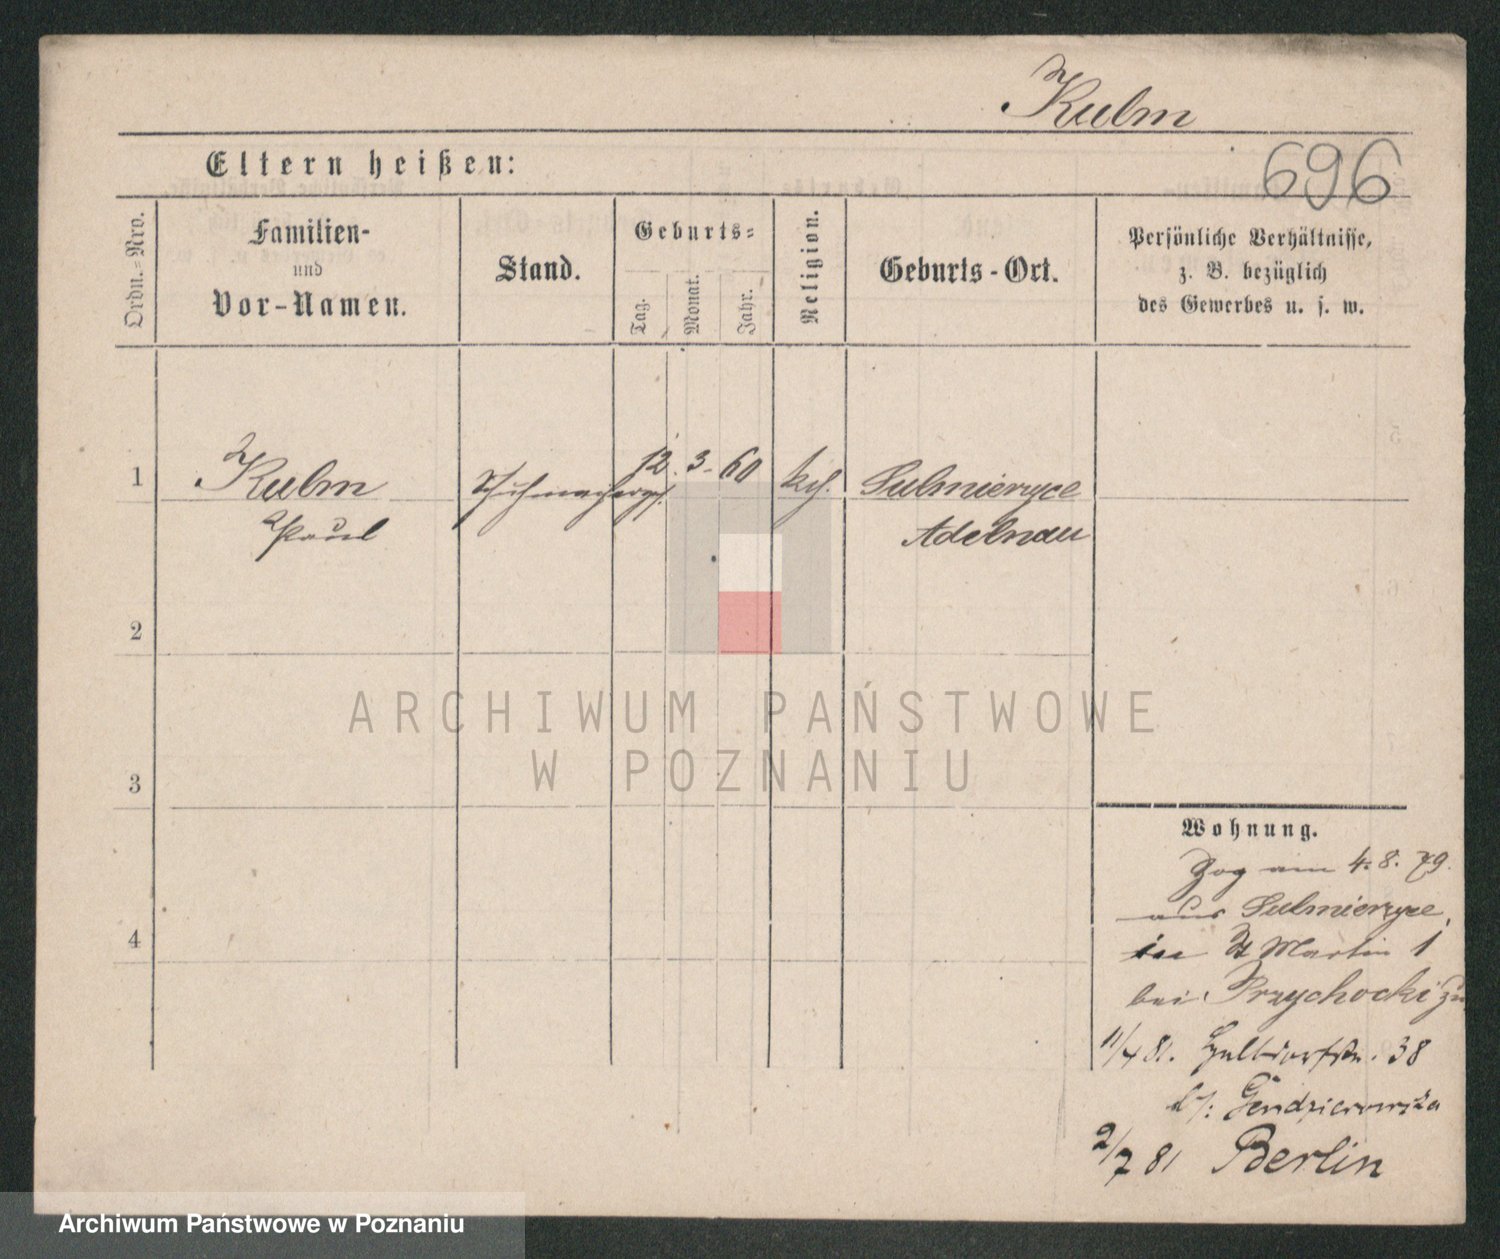 Kulm
696
Eltern heißen:
Ordn.=Nro.
Familien-
und
Vor-Namen.
Stand.
Geburts=
Tag.
Monat.
Jahr.
Religion.
Geburts-Ort.
Persönliche Verhältnisse,
z. B. bezüglich
des Gewerbes u. s. w.
1
Kulm
Paul
Schuhmacherges.
12. 3. 60
kth.
Sulmierzyce
Adelnau
2
3
4
Wohnung.
Zog am 4. 8. 79.
aus Sulmierzyce,
in St Martin 1
bei Przychocki zu
11/4 81. 38
b/:
2/7 81 Berlin
ARCHIWUM PAŃSTWOWE
W POZNANIU
Archiwum Państwowe w Poznaniu